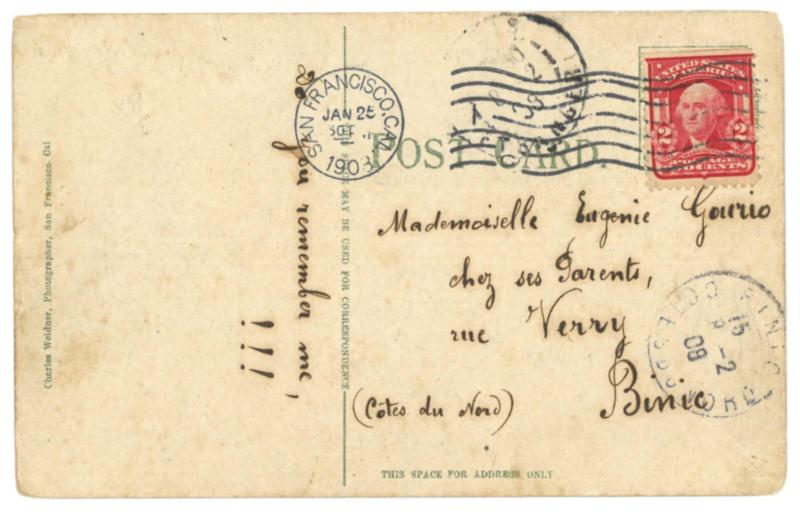 Charles Weidner, Photographer, San Francisco, Cal
Do you remember me,
!!!
SAN FRANCISCO, CAL.
JAN 25
1908
POST CARD.
THIS SPACE MAY BE USED FOR CORRESPONDENCE
UNITED STATES
OF AMERICA
2 2
TWO
CENTS
Mademoiselle Eugenie Gourio
chez ses Parents,
rue Verry
Binic
(Côtes du Nord)
BINIC
15 -2
08
COTES DU NORD
THIS SPACE FOR ADDRESS ONLY